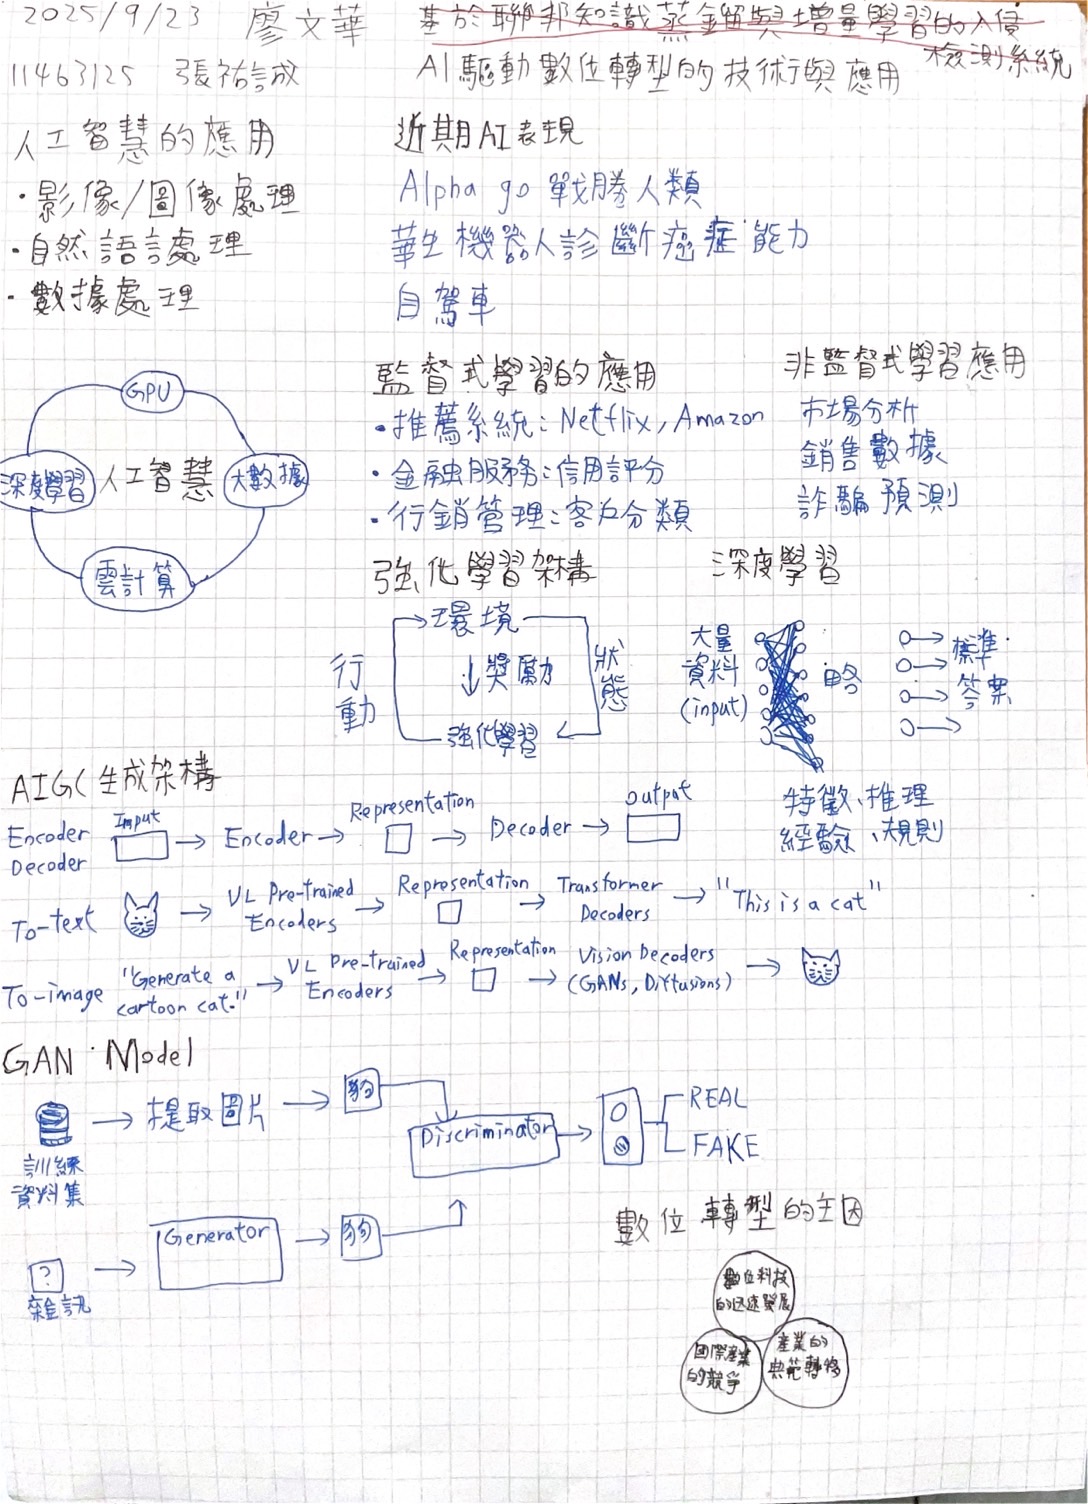 2025/9/23 廖文華 基於聯邦知識蒸餾與增量學習的入侵
檢測系統
11463125 張祐誠 AI驅動數位轉型的技術與應用
人工智慧的應用
・影像/圖像處理
・自然語言處理
・數據處理
近期AI表現
Alpha go 戰勝人類
華生機器人診斷癌症能力
自駕車
GPU
深度學習 人工智慧 大數據
雲計算
監督式學習的應用
・推薦系統:Netflix,Amazon
・金融服務:信用評分
・行銷管理:客戶分類
非監督式學習應用
市場分析
銷售數據
詐騙預測
強化學習架構
環境
行動
獎勵
狀態
強化學習
深度學習
大量
資料
(input)
略
標準
答案
特徵、推理
經驗、規則
AIGC生成架構
Encoder
Decoder
Input
Encoder
Representation
Decoder
output
To-text
VL Pre-trained
Encoders
Representation
Transformer
Decoders
"This is a cat"
To-image
"Generate a
cartoon cat."
VL Pre-trained
Encoders
Representation
Vision Decoders
(GANs, Diffusions)
GAN Model
訓練
資料集
提取圖片
狗
Discriminator
REAL
FAKE
?
雜訊
Generator
狗
數位轉型的主因
數位科技
的迅速發展
國際產業
的競爭
產業的
典範轉移